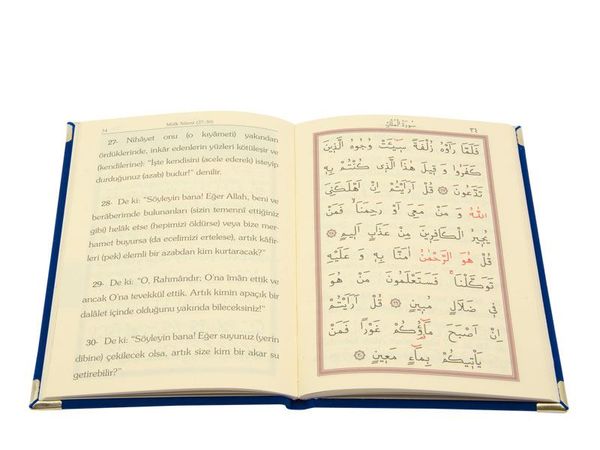 34
Mülk Sûresi (27-30)
27- Nihâyet onu (o kıyâmeti) yakından
ördüklerinde, inkâr edenlerin yüzleri kötüleşir ve
(kendilerine): "İşte kendisini (acele ederek) isteyip
durduğunuz (azab) budur!" denilir.
28- De ki: "Söyleyin bana! Eğer Allah, beni ve
berâberimde bulunanları (sizin temennî ettiğiniz
gibi) helâk etse (hepimizi öldürse) veya bize mer-
hamet buyursa (da ecelimizi ertelese), artık kâfir-
leri (pek) elemli bir azabdan kim kurtaracak?"
29- De ki: "O, Rahmândır; O'na îmân ettik ve
ancak O'na tevekkül ettik. Artık kimin apaçık bir
dalâlet içinde olduğunu yakında bileceksiniz!"
30- De ki: "Söyleyin bana! Eğer suyunuz (yerin
dibine) çekilecek olsa, artık size kim bir akar su
getirebilir?"
سُورَةُ الْمُلْكِ
٣٤
فَلَمَّا رَاَوْهُ زُلْفَةً سٖيٓـَٔتْ وُجُوهُ الَّذٖينَ
كَفَرُوا وَ قٖيلَ هٰذَا الَّذٖى كُنْتُمْ بِهٖ
تَدَّعُونَ ۝ قُلْ اَرَاَيْتُمْ اِنْ اَهْلَكَنِىَ
اللّٰهُ وَ مَنْ مَعِىَ اَوْ رَحِمَنَا ۙ فَمَنْ
يُجٖيرُ الْكَافِرٖينَ مِنْ عَذَابٍ اَلٖيمٍ ۝
قُلْ هُوَ الرَّحْمٰنُ اٰمَنَّا بِهٖ وَ عَلَيْهِ
تَوَكَّلْنَا ۚ فَسَتَعْلَمُونَ مَنْ هُوَ
فٖى ضَلَالٍ مُبٖينٍ ۝ قُلْ اَرَاَيْتُمْ
اِنْ اَصْبَحَ مَٓاؤُكُمْ غَوْرًا فَمَنْ
يَاْتٖيكُمْ بِمَٓاءٍ مَعٖينٍ ۝